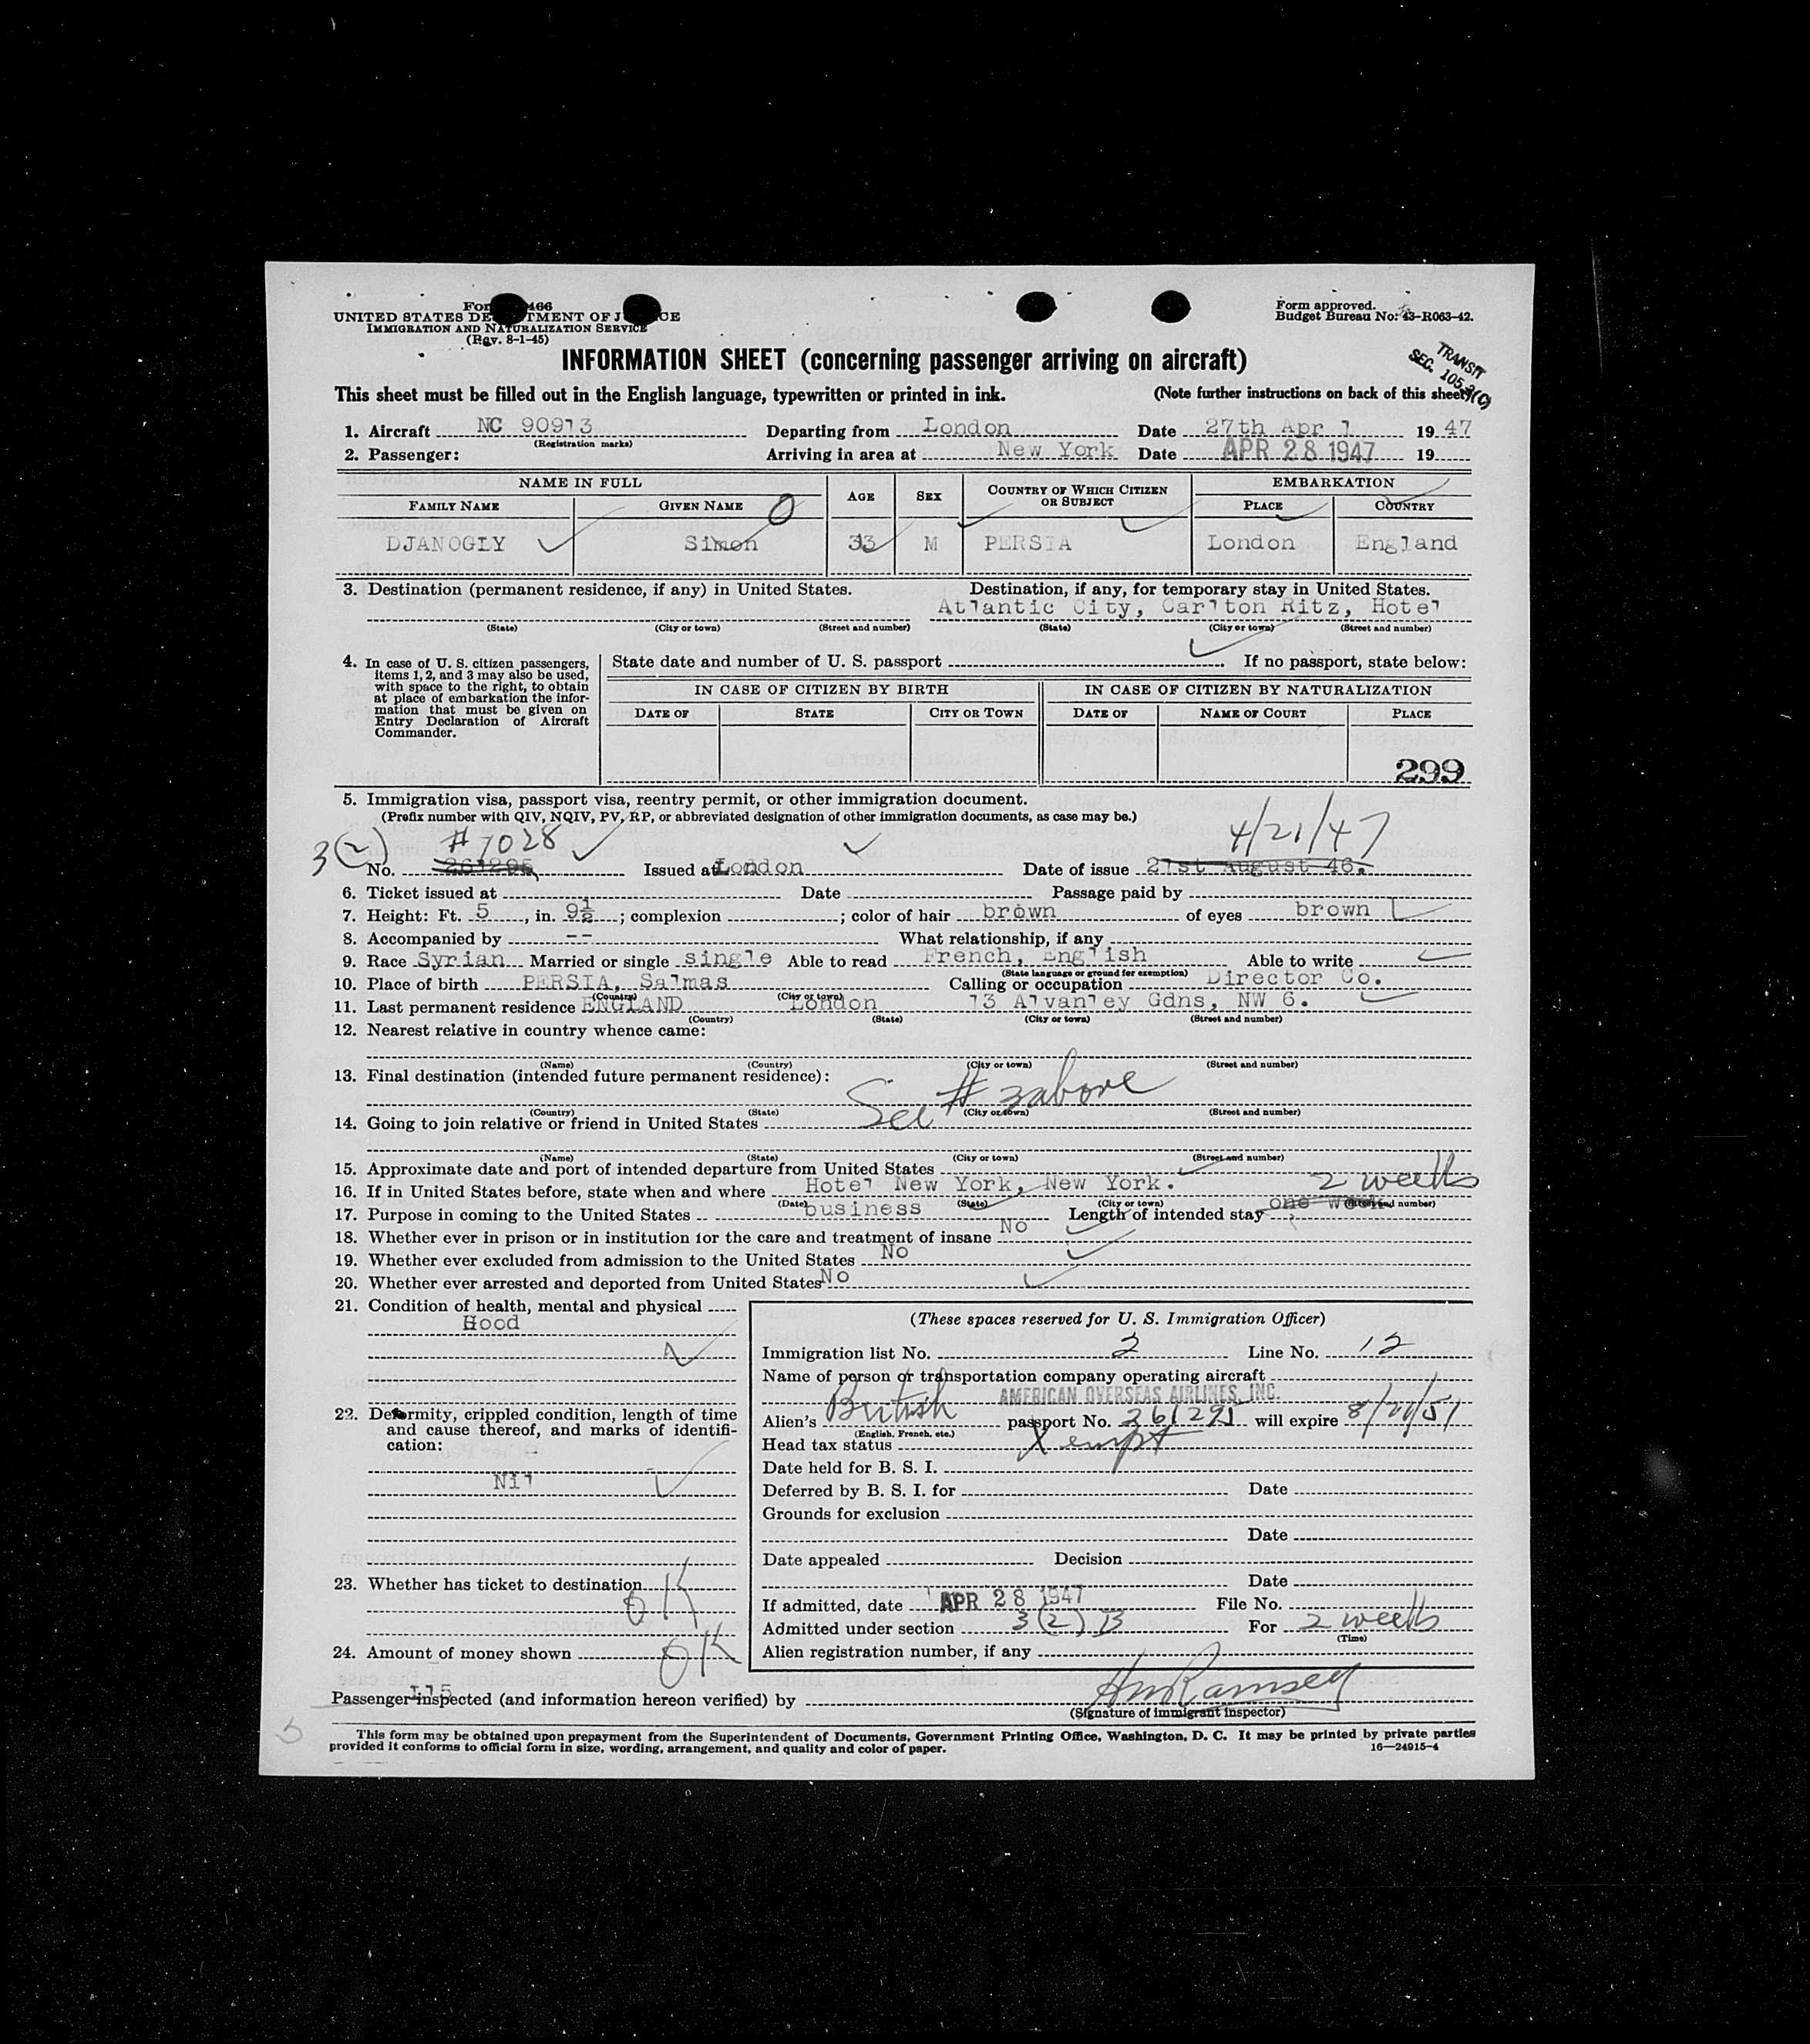 Form I-466
UNITED STATES DEPARTMENT OF JUSTICE
IMMIGRATION AND NATURALIZATION SERVICE
(Rev. 8-1-45)
Form approved.
Budget Bureau No. 43-R063-42.
INFORMATION SHEET (concerning passenger arriving on aircraft)
TRANSIT
SEC. 105.3(C)
This sheet must be filled out in the English language, typewritten or printed in ink. (Note further instructions on back of this sheet)
1. Aircraft NC 90913 Departing from London Date 27th Apr l 19 47
(Registration marks)
2. Passenger: Arriving in area at New York Date APR 28 1947 19
NAME IN FULL AGE SEX COUNTRY OF WHICH CITIZEN OR SUBJECT EMBARKATION
FAMILY NAME GIVEN NAME PLACE COUNTRY
O
DJANOGLY Simon 33 M PERSIA London England
3. Destination (permanent residence, if any) in United States. Destination, if any, for temporary stay in United States.
Atlantic City, Carlton Ritz, Hotel
(State) (City or town) (Street and number) (State) (City or town) (Street and number)
4. In case of U. S. citizen passengers, items 1, 2, and 3 may also be used, with space to the right, to obtain at place of embarkation the information that must be given on Entry Declaration of Aircraft Commander.
State date and number of U. S. passport If no passport, state below:
IN CASE OF CITIZEN BY BIRTH IN CASE OF CITIZEN BY NATURALIZATION
DATE OF STATE CITY OR TOWN DATE OF NAME OF COURT PLACE
299
5. Immigration visa, passport visa, reentry permit, or other immigration document.
(Prefix number with QIV, NQIV, PV, RP, or abbreviated designation of other immigration documents, as case may be.)
3(2) #7028 4/21/47
No. 261295 Issued at London Date of issue 21st August 46.
6. Ticket issued at Date Passage paid by
7. Height: Ft. 5, in. 9½; complexion ; color of hair brown of eyes brown
8. Accompanied by -- What relationship, if any
9. Race Syrian Married or single single Able to read French, English Able to write
(State language or ground for exemption)
10. Place of birth PERSIA, Salmas Calling or occupation Director Co.
(Country) (City or town)
11. Last permanent residence ENGLAND London 13 Alvanley Gdns, NW 6.
(Country) (State) (City or town) (Street and number)
12. Nearest relative in country whence came:
(Name) (Country) (City or town) (Street and number)
13. Final destination (intended future permanent residence):
See # 3 above
(Country) (State) (City or town) (Street and number)
14. Going to join relative or friend in United States
(Name) (State) (City or town) (Street and number)
15. Approximate date and port of intended departure from United States
16. If in United States before, state when and where Hotel New York, New York. 2 weeks
(Date) (State) (City or town) (Street and number)
17. Purpose in coming to the United States business Length of intended stay one week
18. Whether ever in prison or in institution for the care and treatment of insane No
19. Whether ever excluded from admission to the United States No
20. Whether ever arrested and deported from United States No
21. Condition of health, mental and physical
Hood
22. Deformity, crippled condition, length of time and cause thereof, and marks of identification:
Nil
23. Whether has ticket to destination
OK
24. Amount of money shown OK
(These spaces reserved for U. S. Immigration Officer)
Immigration list No. 2 Line No. 12
Name of person or transportation company operating aircraft
AMERICAN OVERSEAS AIRLINES, INC.
Alien's British passport No. 261295 will expire 8/20/51
(English, French, etc.)
Head tax status Xempt
Date held for B. S. I.
Deferred by B. S. I. for Date
Grounds for exclusion
Date
Date appealed Decision
Date
If admitted, date APR 28 1947 File No.
Admitted under section 3(2) B For 2 weeks
(Time)
Alien registration number, if any
Passenger inspected (and information hereon verified) by
(Signature of immigrant inspector)
This form may be obtained upon prepayment from the Superintendent of Documents, Government Printing Office, Washington, D. C. It may be printed by private parties
provided it conforms to official form in size, wording, arrangement, and quality and color of paper. 16—24915-4